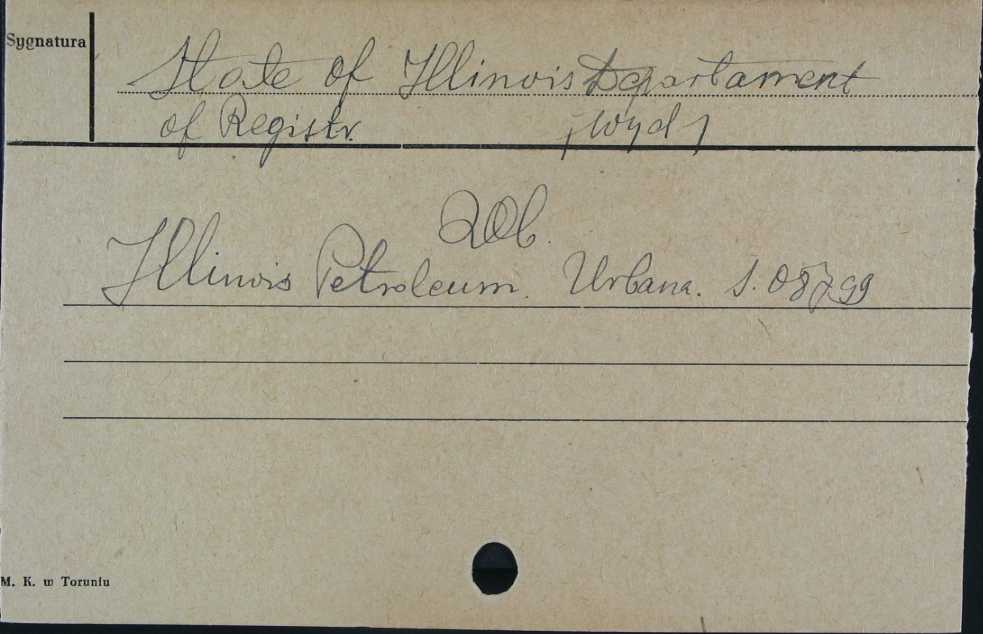 Sygnatura
State of Illinois Departament
of Registr. /wyd/
Zob.
Illinois Petroleum. Urbana. S. 08799
M. K. w Toruniu